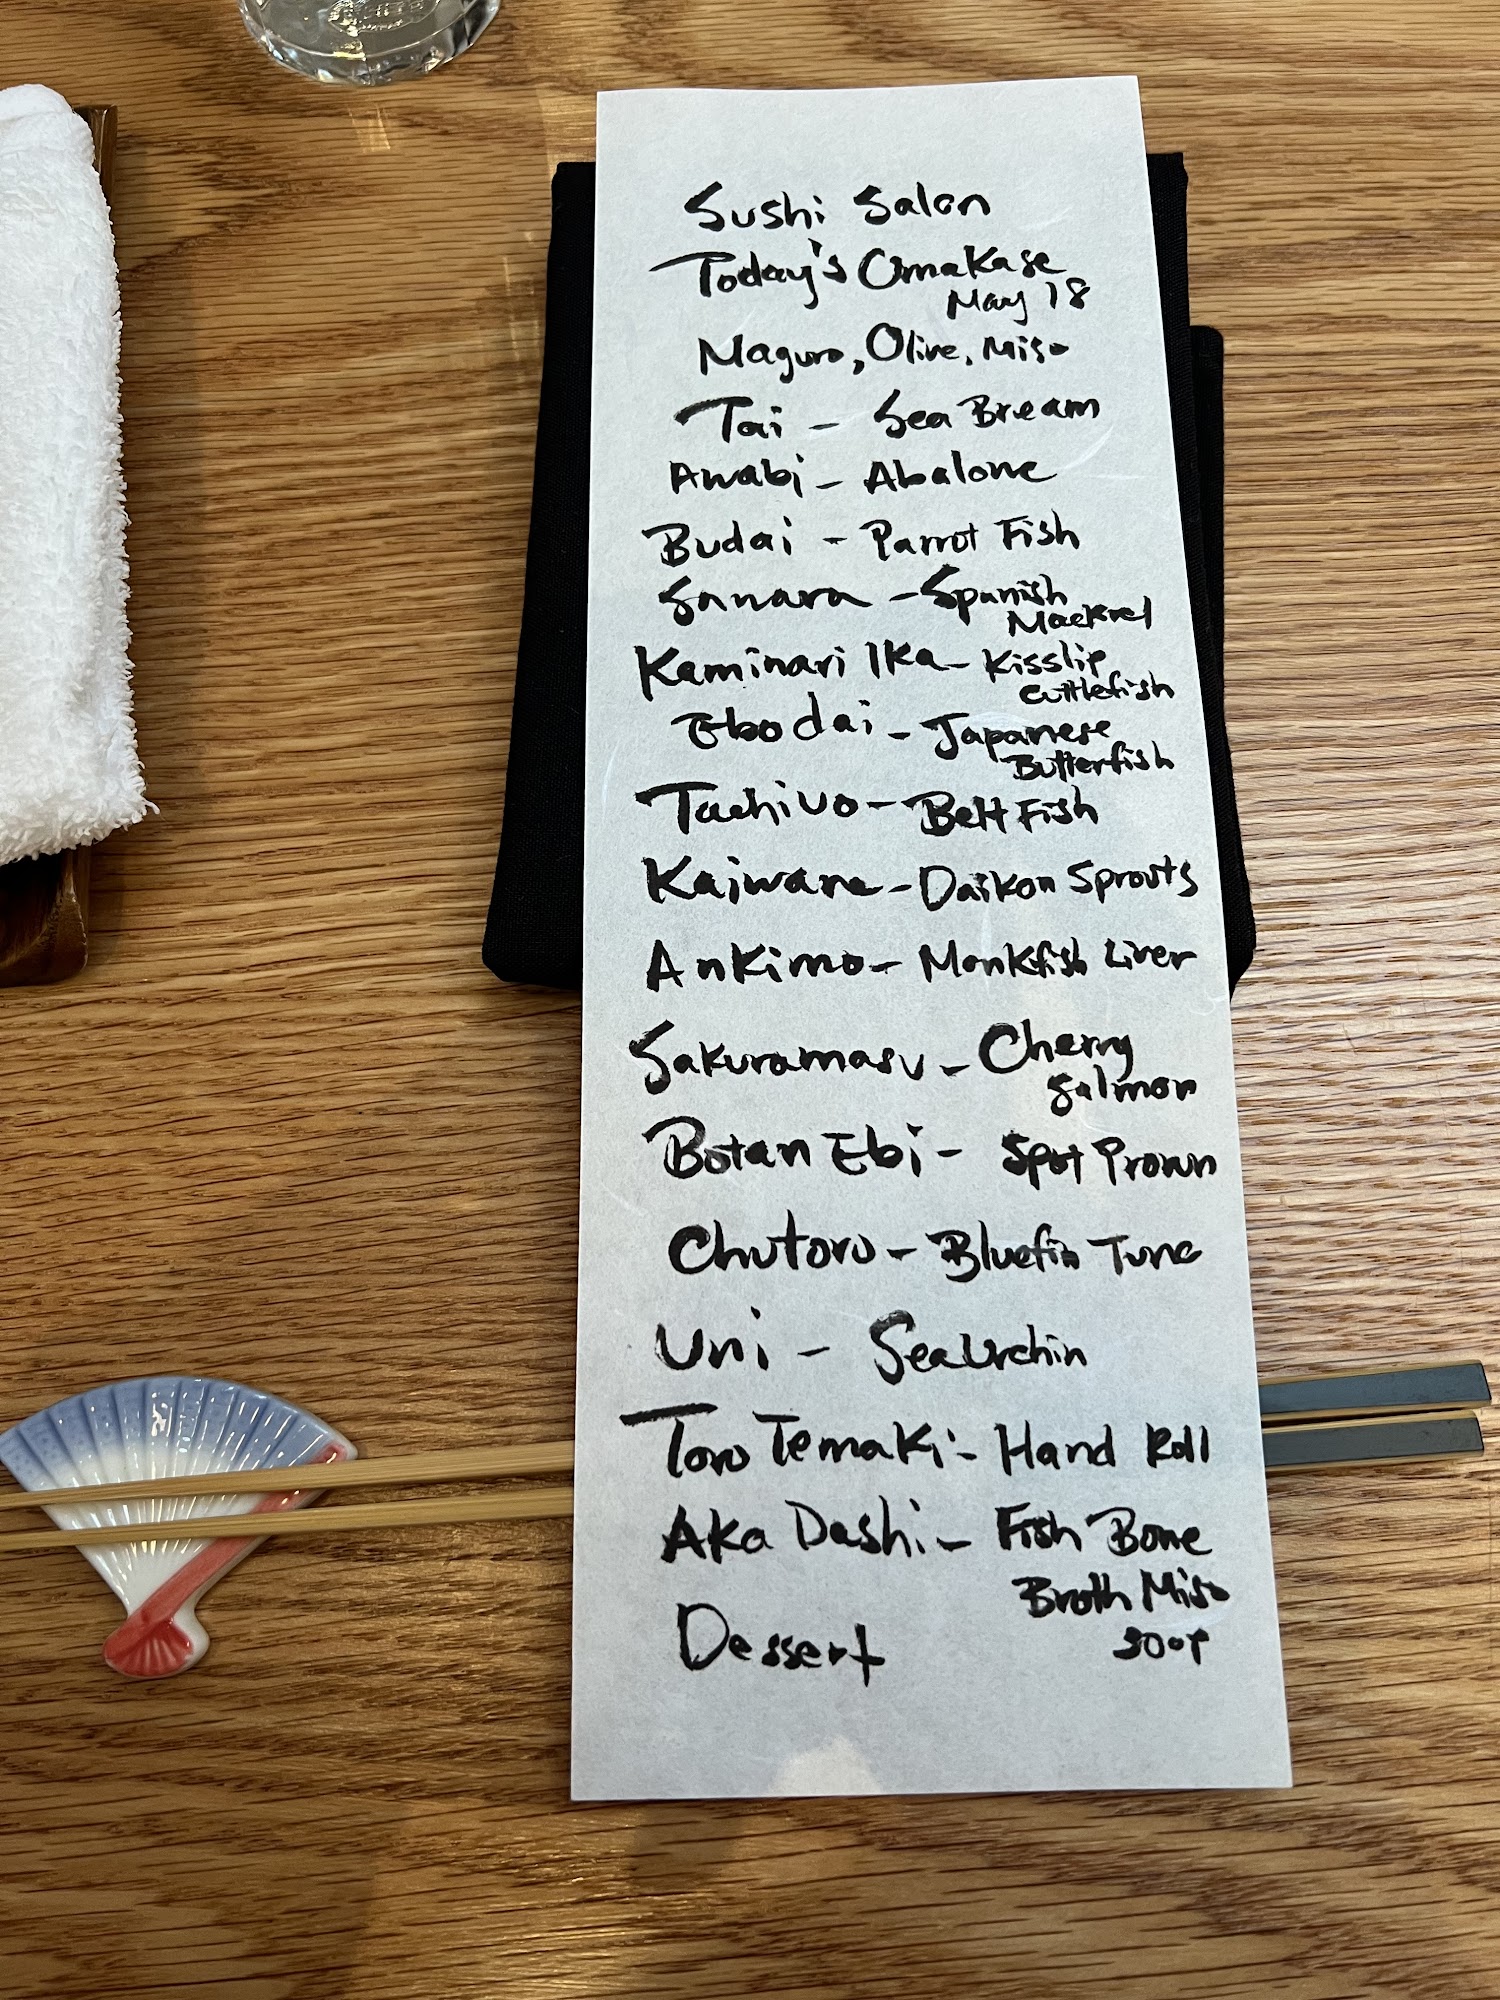 Sushi Salon
Today's Omakase
May 18
Maguro, Olive, Miso
Tai - Sea Bream
Awabi - Abalone
Budai - Parrot Fish
Sawara - Spanish
Mackrel
Kaminari Ika - Kisslip
Cuttlefish
Ebodai - Japanese
Butterfish
Tachiuo - Belt Fish
Kaiware - Daikon Sprouts
Ankimo - Monkfish Liver
Sakuramasu - Cherry
Salmon
Botan Ebi - Spot Prawn
Chutoro - Bluefin Tuna
Uni - Sea Urchin
Toro Temaki - Hand Roll
Aka Dashi - Fish Bone
Broth Miso
Soup
Dessert